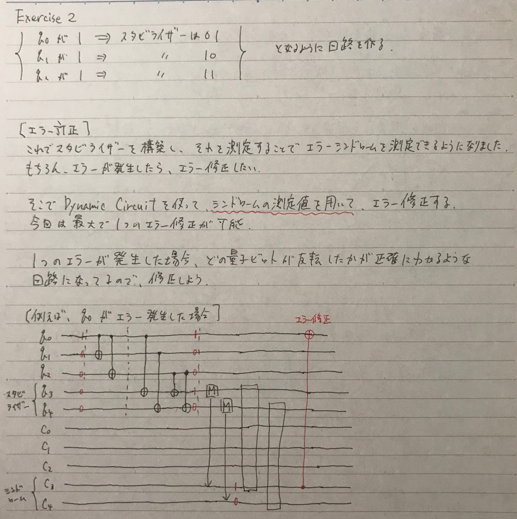 Exercise 2
q₀ が 1 ⇒ スタビライザーは 01
q₁ が 1 ⇒ 〃 10
q₂ が 1 ⇒ 〃 11
となるように回路を作る.
[エラー訂正]
これでスタビライザーを構築し、それを測定することでエラーシンドロームを測定できるようになりました.
もちろん、エラーが発生したら、エラー修正したい.
そこで Dynamic Circuit を使って、シンドロームの測定値を用いて、エラー修正する.
今回は最大で1つのエラー修正が可能.
1つのエラーが発生した場合、どの量子ビットが反転したかが正確にわかるような
回路になってるので、修正しよう.
[例えば、q₀ がエラー発生した場合]
エラー修正
q₀
q₁
q₂
スタビ
ライザー
q₃
q₄
M
M
C₀
C₁
C₂
シンド
ローム
C₃
C₄